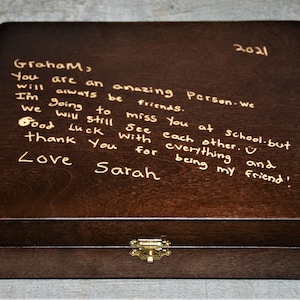 2021
GrahaM,
You are an amazing Person. we
will always be friends.
I'm going to miss You at school. but
we will still see each other. ☺
Good Luck with everything and
thank You for being my friend!
Love Sarah